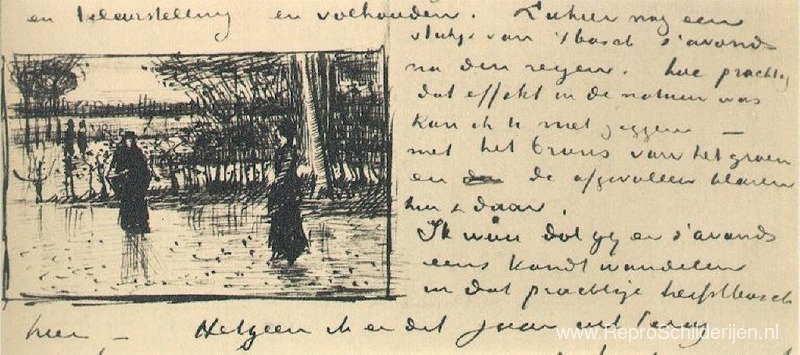 en teleurstelling en volhouden. Ziehier nog een
vlekje van 't bosch s'avonds
na den regen. hoe prachtig
dat effekt in de natuur was
kan ik U niet zeggen –
met het brons van het groen
en de afgevallen blaren
hier & daar.
Ik wou dat gij er s'avonds
eens kondt wandelen
in dat prachtige herfstbosch
hier – Hetgeen ik er dit jaar uit breng
www.ReproSchilderijen.nl